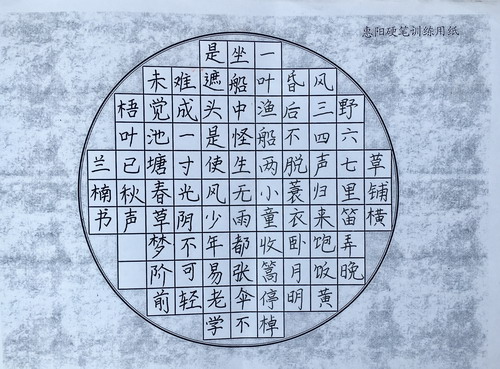 惠阳硬笔训练用纸
草铺横
野六七里笛弄晚
风三四声归来饱饭黄
昏后不脱蓑衣卧月明
一叶渔船两小童收篙停棹
坐船中怪生无雨都张伞不
是遮头是使风少年易老学
难成一寸光阴不可轻
未觉池塘春草梦阶前
梧叶已秋声
兰楠书